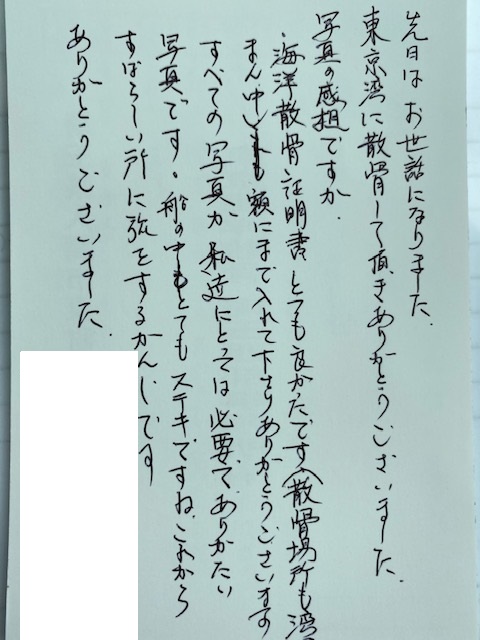 先日は お世話になりました.
東京湾に散骨して頂きありがとうございました.
写真の感想ですが.
海洋散骨証明書 とても良かたです(散骨場所も湾
まん中 額にまで入れて下さりありがとうございます
すべての写真が 私達にとっては必要で、ありがたい
写真です。船の中もとてもステキですね、これから
すばらしい所に旅をするかんじです
ありがとうございました.